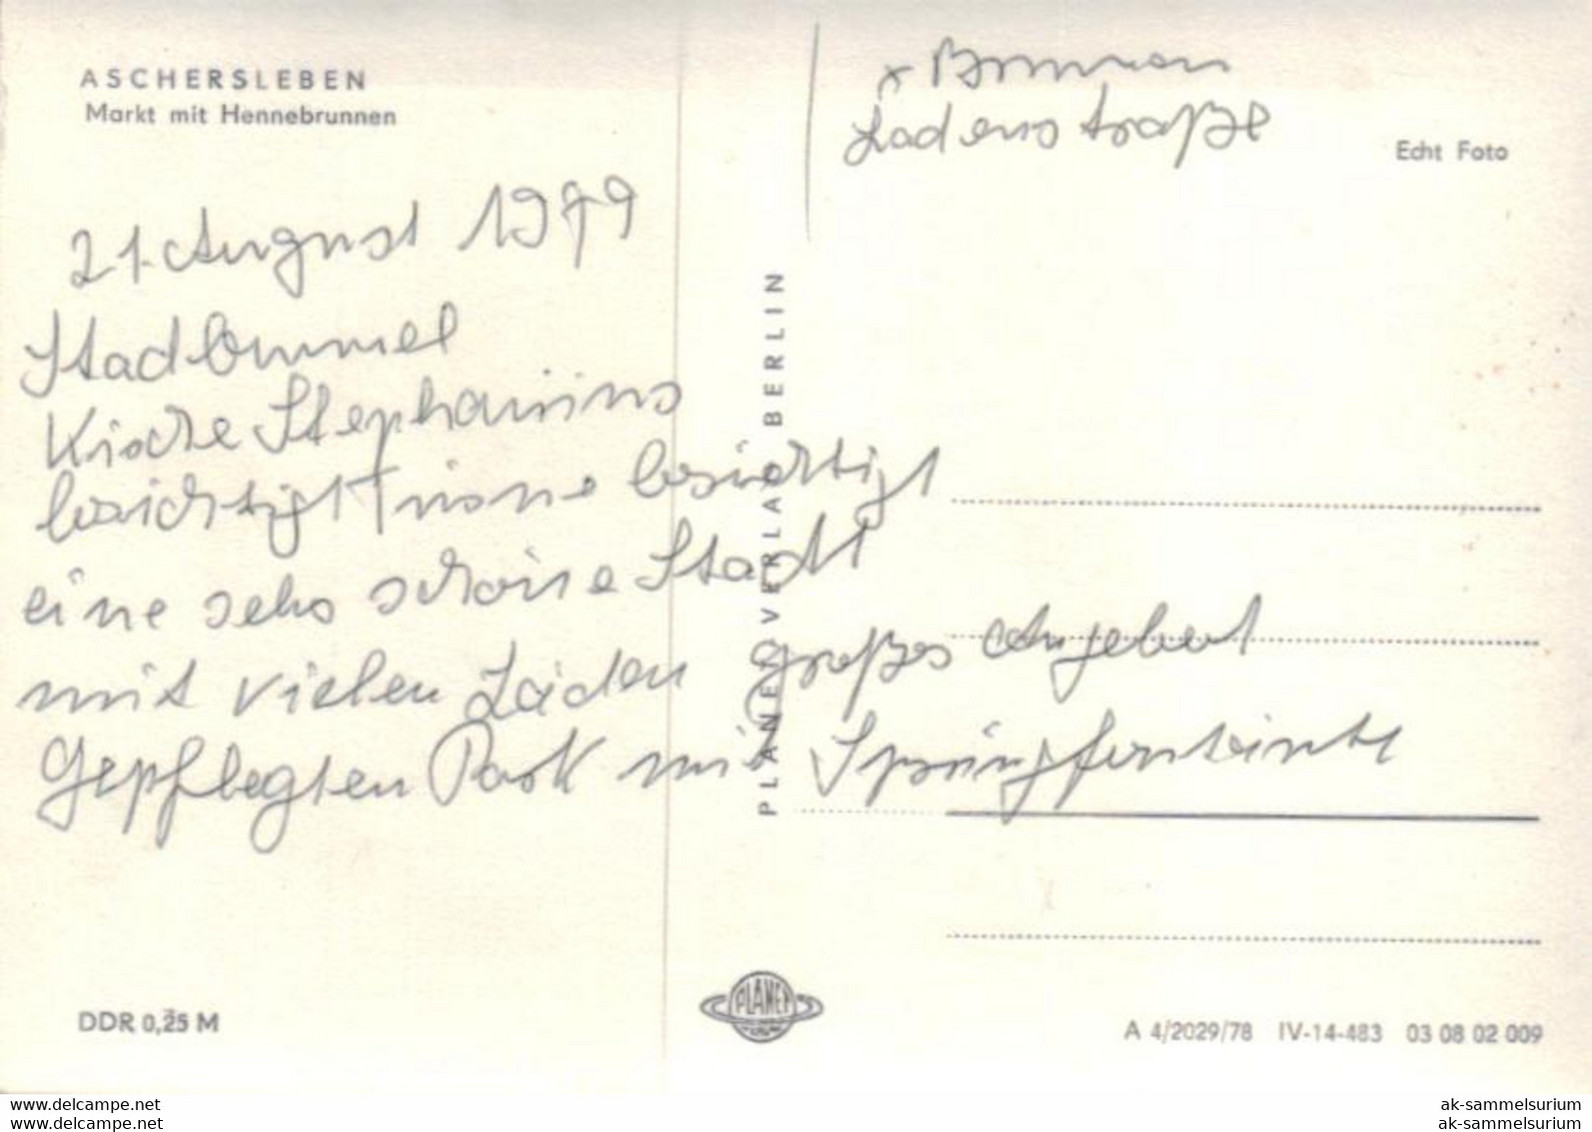 ASCHERSLEBEN
Markt mit Hennebrunnen
x Brunnen
Ladenstraße
Echt Foto
21. August 1979
Stadbummel
Kirche Stephaninus
besichtigt innen besichtigt
eine sehr schöne Stadt
mit vielen Läden großes Angebot
Gepflegten Park mit
PLANET-VERLAG BERLIN
PLANET
DDR 0,25 M
A 4/2029/78 IV-14-483 03 08 02 009
www.delcampe.net
www.delcampe.net
ak-sammelsurium
ak-sammelsurium